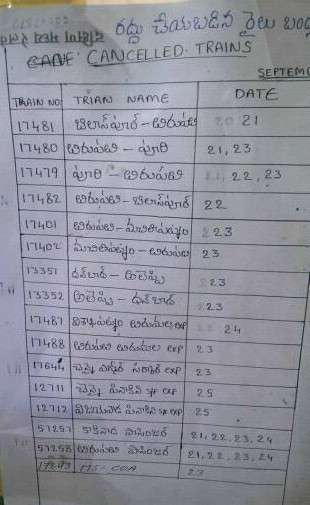 రద్దు చేయబడిన రైలు బండ్
CANCELLED. TRAINS
SEPTEMB
TRAIN NO TRIAN NAME DATE
17481 బిలాస్‌పూర్ - తిరుపతి 21
17480 తిరుపతి - పూరి 21, 23
17479 పూరి - తిరుపతి 22, 23
17482 తిరుపతి - బిలాస్‌పూర్ 22
17401 తిరుపతి - మచిలీపట్నం 23
17402 మచిలీపట్నం - తిరుపతి 23
13351 ధన్‌బాద్ - అలెప్పి 23
13352 అలెప్పి - ధన్‌బాద్ 23
17487 విశాఖపట్నం తిరుమల exp 24
17488 తిరుపతి తిరుమల exp 23
17644 చెన్నై సర్కార్ exp 23
12711 చెన్నై పినాకిని spr exp 25
12712 విజయవాడ పినాకిని spr exp 25
57257 కాకినాడ పాసింజర్ 21, 22, 23, 24
57258 తిరుపతి పాసింజర్ 21, 22, 23, 24
23